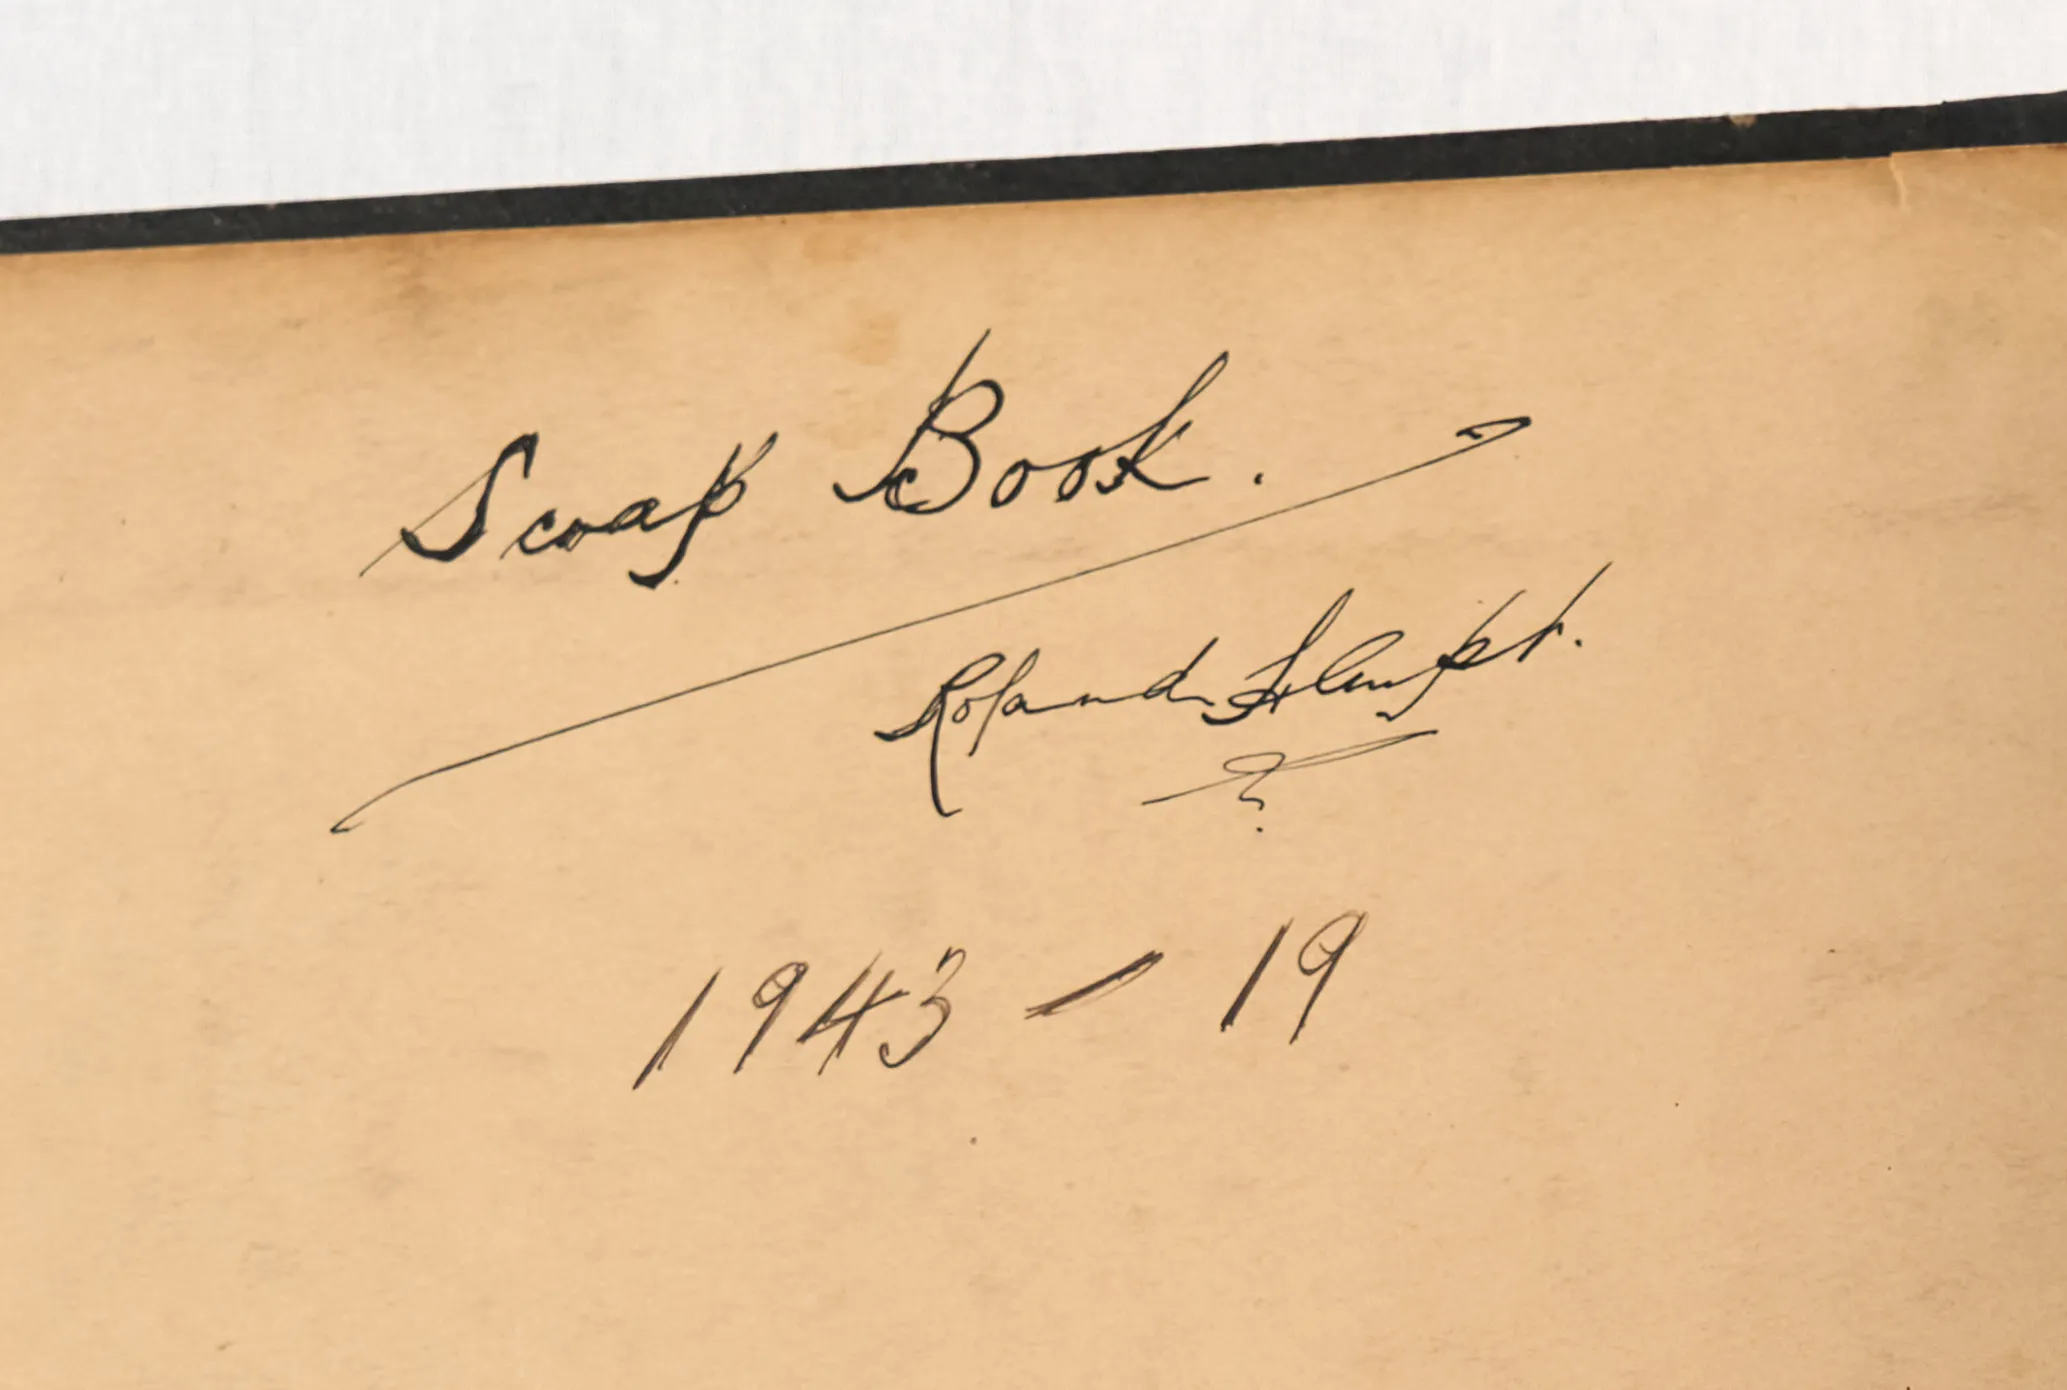 Scrap Book.
Roland
1943 - 19